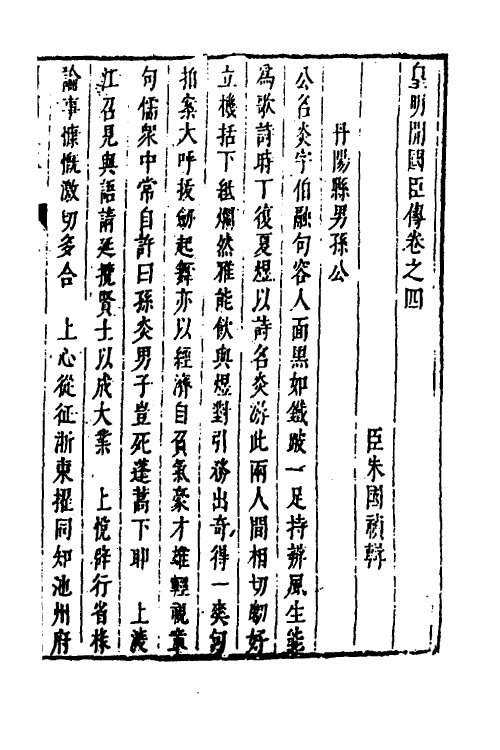 皇明開國臣傳卷之四
臣朱國禎輯
丹陽縣男孫公
公名炎字伯融句容人面黑如鐵跛一足持辨風生能
為歌詩時丁復夏煜以詩名炎游此兩人間相切劘好
立機括下紙爛然雅能飲與煜對引務出奇得一奭句
拍案大呼拔劍起舞亦以經濟自負氣豪才雄輕視章
句儒眾中常自許曰孫炎男子豈死蓬蒿下耶 上渡
江召見與語請延攬賢士以成大業 上悅辟行省椽
論事慷慨激切多合 上心從征浙東擢同知池州府